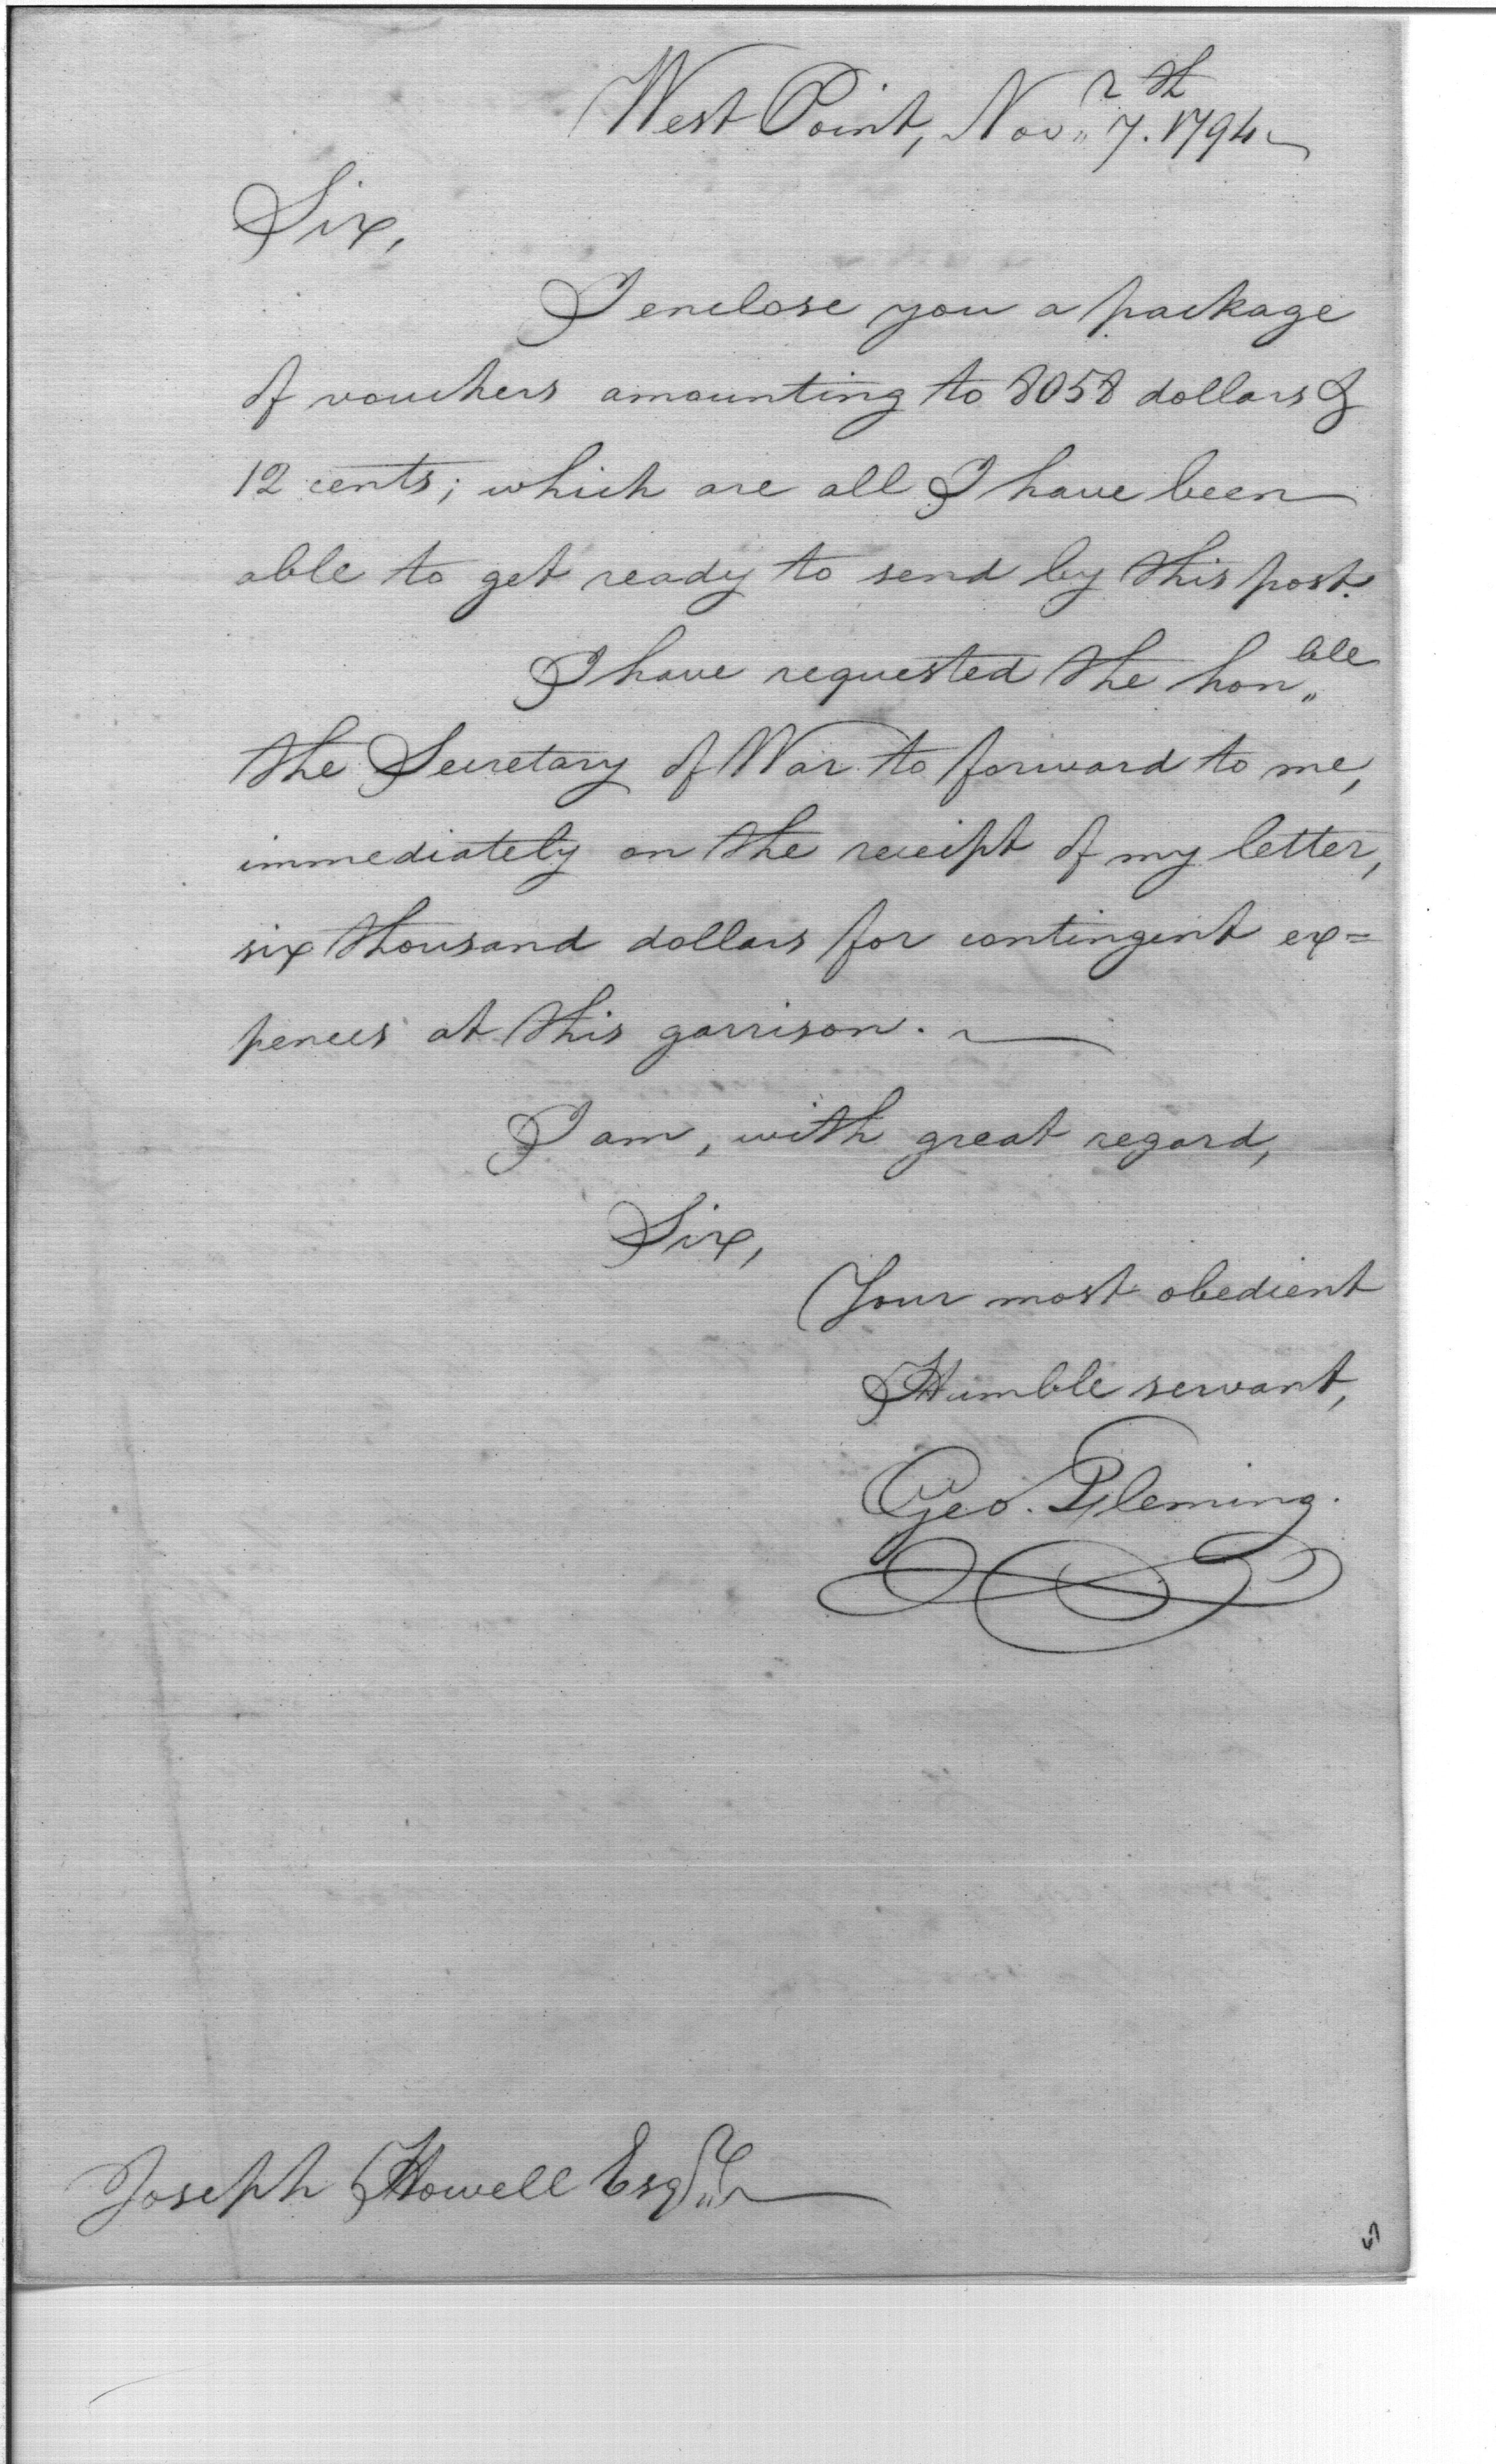 West Point, Nov.r 7.th 1794
Sir,
I enclose you a package
of vouchers amounting to 8058 dollars &
12 cents; which are all I have been
able to get ready to send by this post.
I have requested the hon.ble
the Secretary of War to forward to me,
immediately on the receipt of my letter,
six thousand dollars for contingent ex=
pences at this garrison.
I am, with great regard,
Sir,
Your most obedient
Humble servant,
Geo. Fleming.
Joseph Howell Esq.r